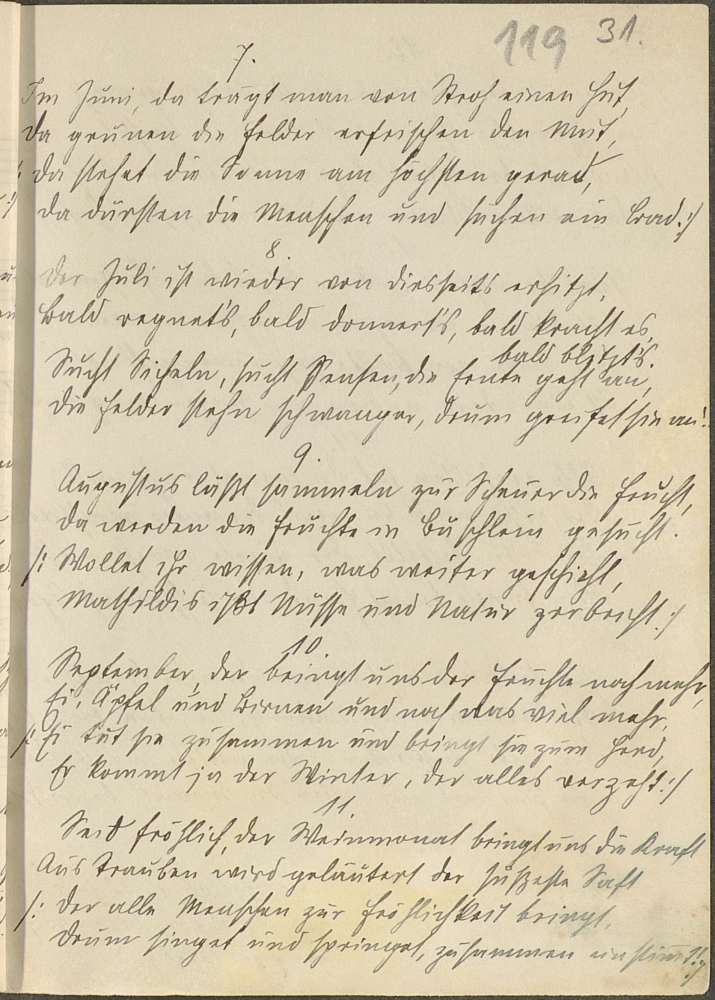 119 31.
7.
Im Juni, da trägt man von Stroh einen Hut,
Da grünen die Felder erfrischen den Mut,
/: Da stehet die Sonne am höchsten gerad,
Da dürsten die Menschen und suchen ein Bad. :/
8.
Der Juli ist wieder von diesseits erhitzt,
Bald regnet's, bald donnert's, bald kracht es,
bald blitzt's.
Sucht Sicheln, sucht Sensen, die Ernte geht an,
Die Felder stehn schwanger, drum greifet sie an!
9.
Augustus läßt sammeln zur Scheuer die Frucht,
Da werden die Früchte in Büschlein gesucht.
/: Wollet ihr wissen, was weiter geschieht,
Mathildis ißt Nüsse und Natur zerbricht :/
10.
September, der bringt uns der Früchte noch mehr,
Ei, Äpfel und Birnen und noch was viel mehr,
/: Ei tut sie zusammen und bringt sie zum Herd,
Er kommt ja der Winter, der alles verzehrt. :/
11.
Seid fröhlich, der Weinmonat bringt uns die Kraft
Aus Trauben wird geläutert der süßeste Saft
/: Der alle Menschen zur Fröhlichkeit bringt,
Drum singet und springet, zusammen einstimmt! :/